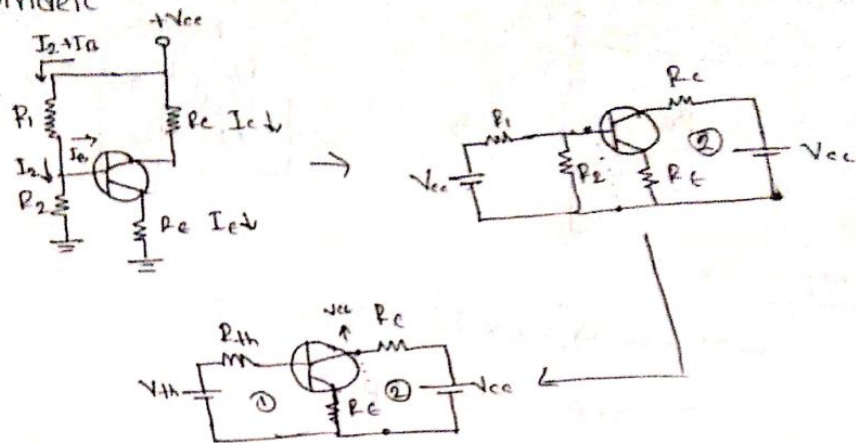 +Vcc
I2+IB
R1
Rc Ic
IB
I2
R2
Re Ie
Rc
R1
②
Vcc
R2
RE
Vcc
Vcc
Rc
Rth
Vth
①
RE
②
Vcc